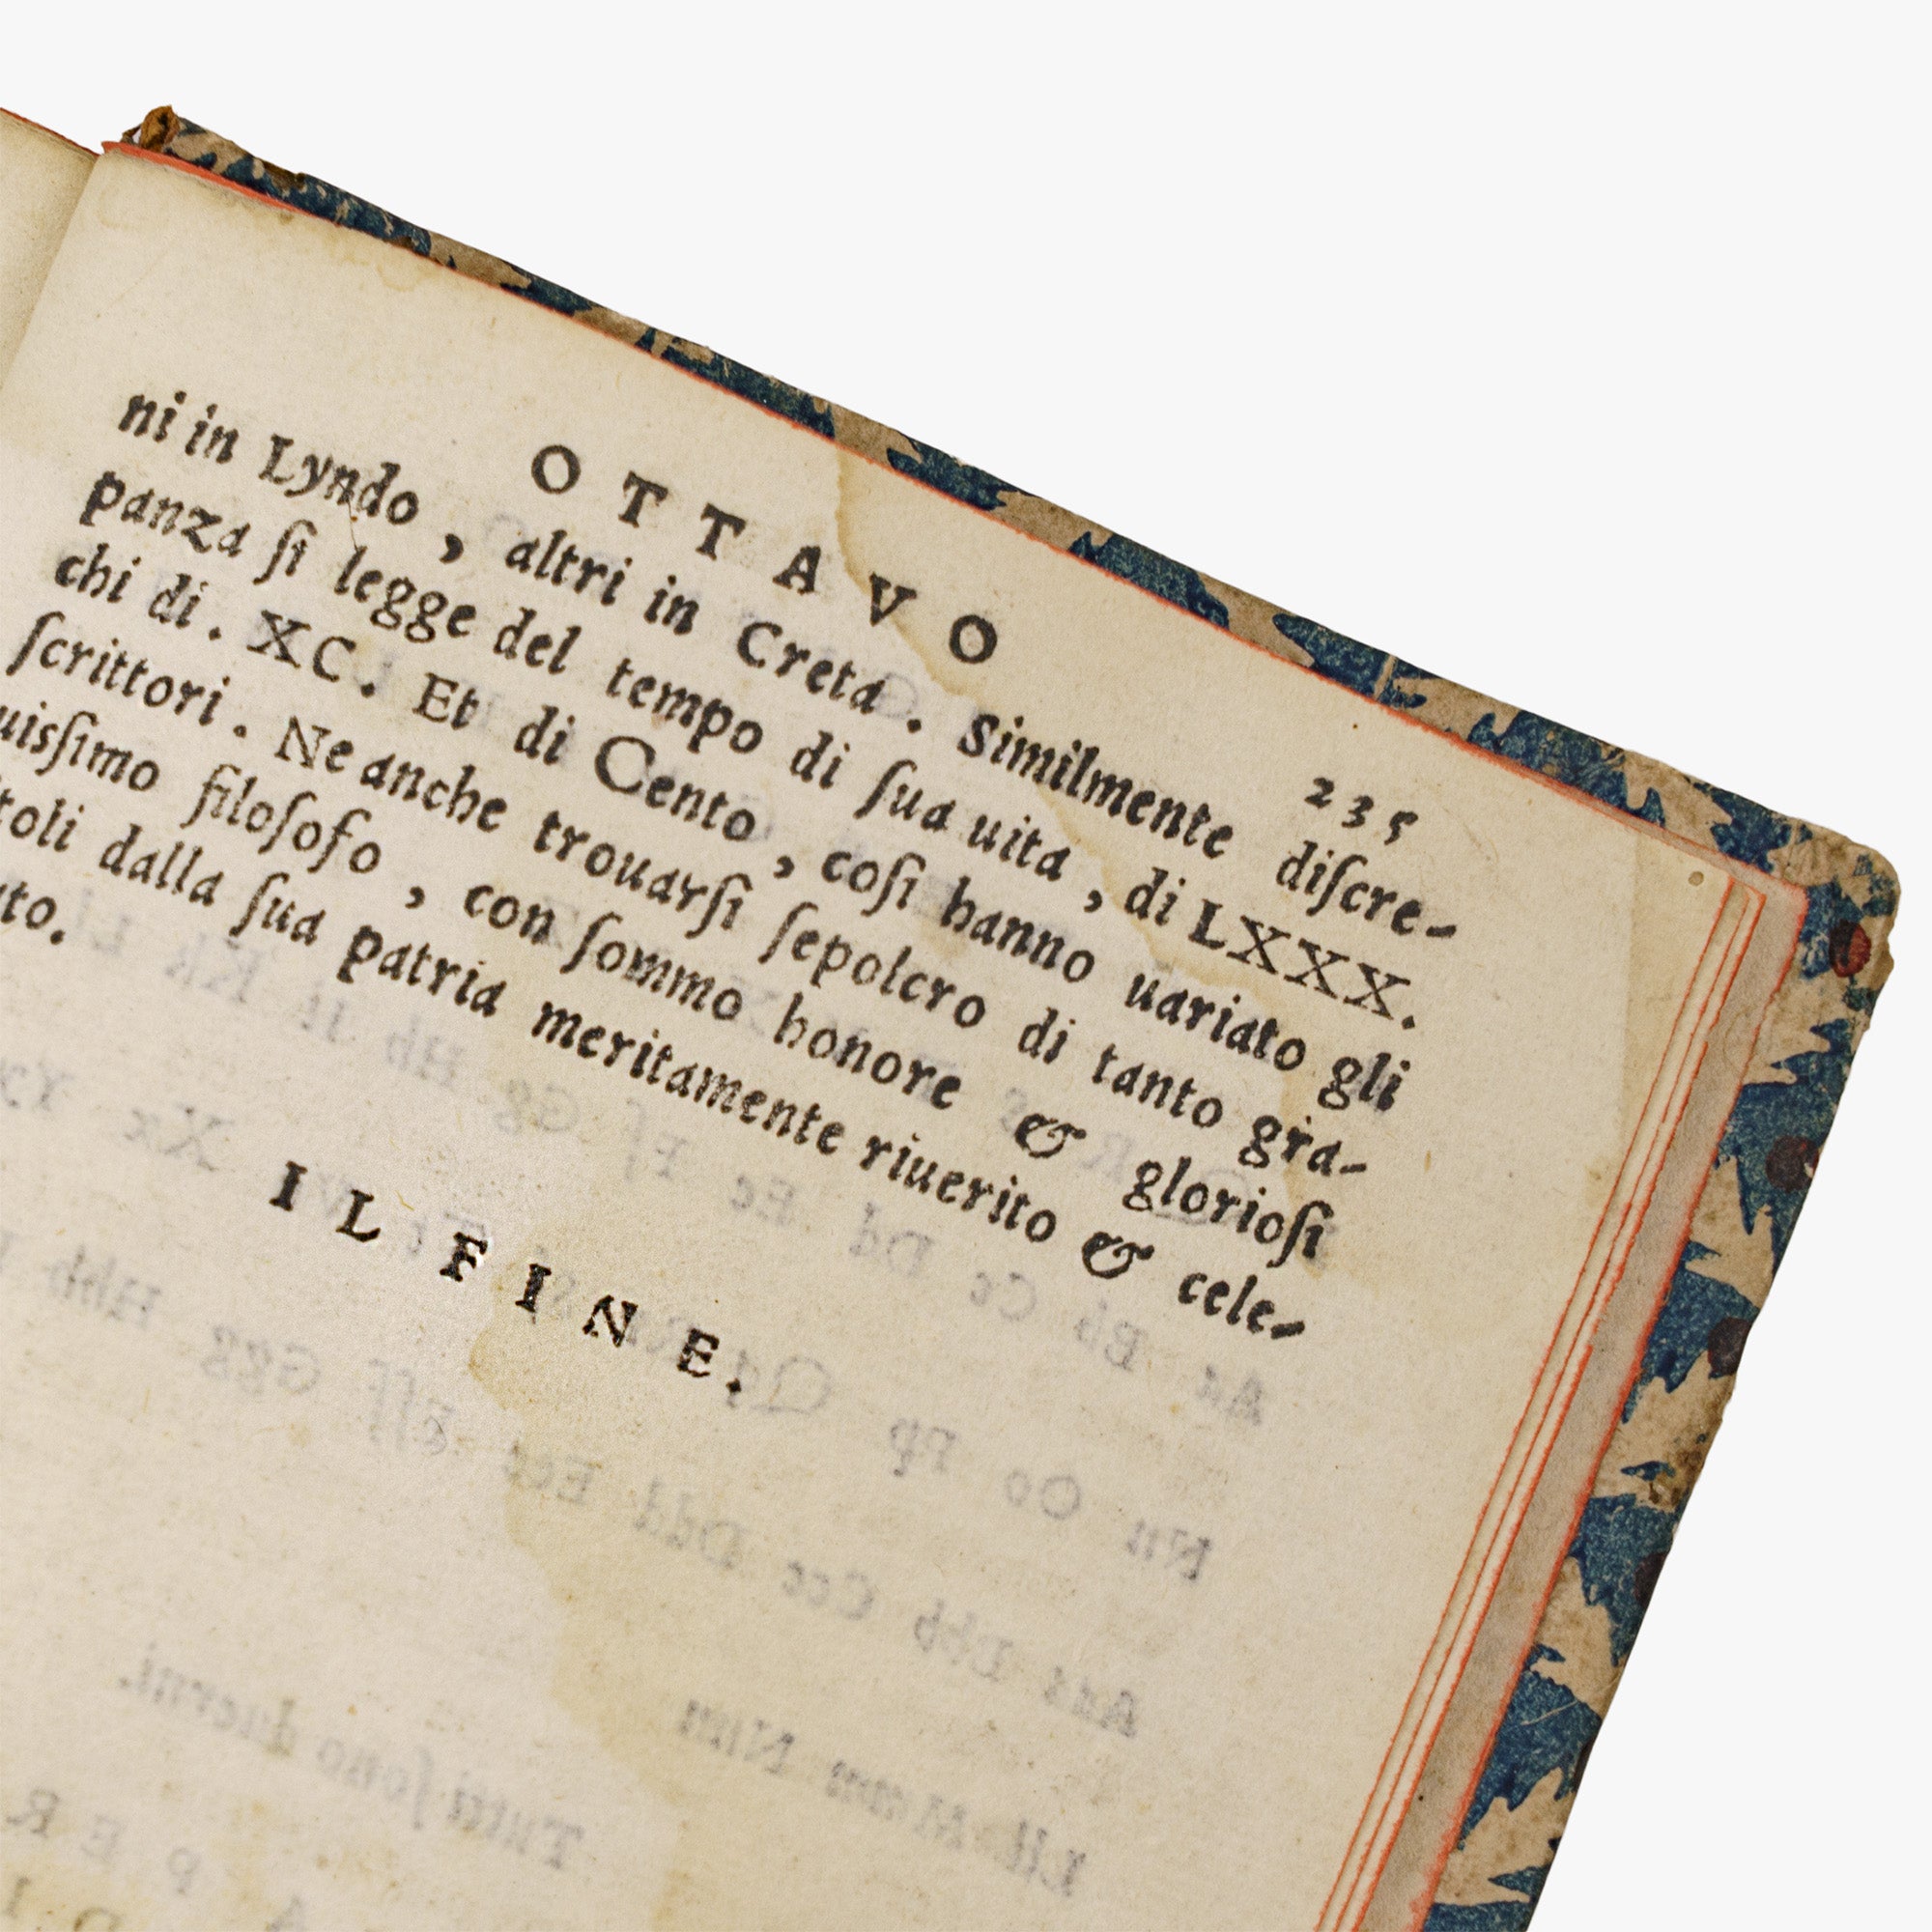 OTTAVO 235
ni in Lyndo, altri in Creta. Similmente diſcre-
panza ſi legge del tempo di ſua uita, di LXXX.
chi di. XC. Et di Cento, coſi hanno uariato gli
ſcrittori. Ne anche trouarſi ſepolcro di tanto gra-
uisſimo filoſofo, con ſommo honore & glorioſi
toli dalla ſua patria meritamente riuerito & cele-
to.
IL FINE.